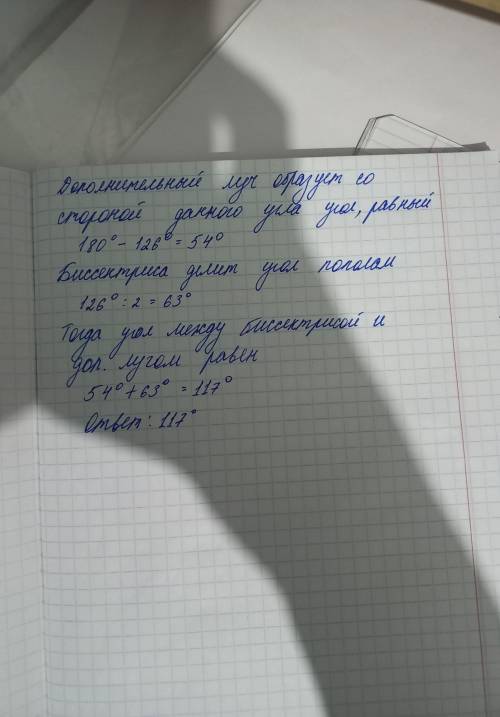 Дополнительный луч образует со
стороной данного угла угол, равный
180° - 126° = 54°
Биссектриса делит угол пополам
126° : 2 = 63°
Тогда угол между биссектрисой и
доп. лучом равен
54° + 63° = 117°
Ответ: 117°